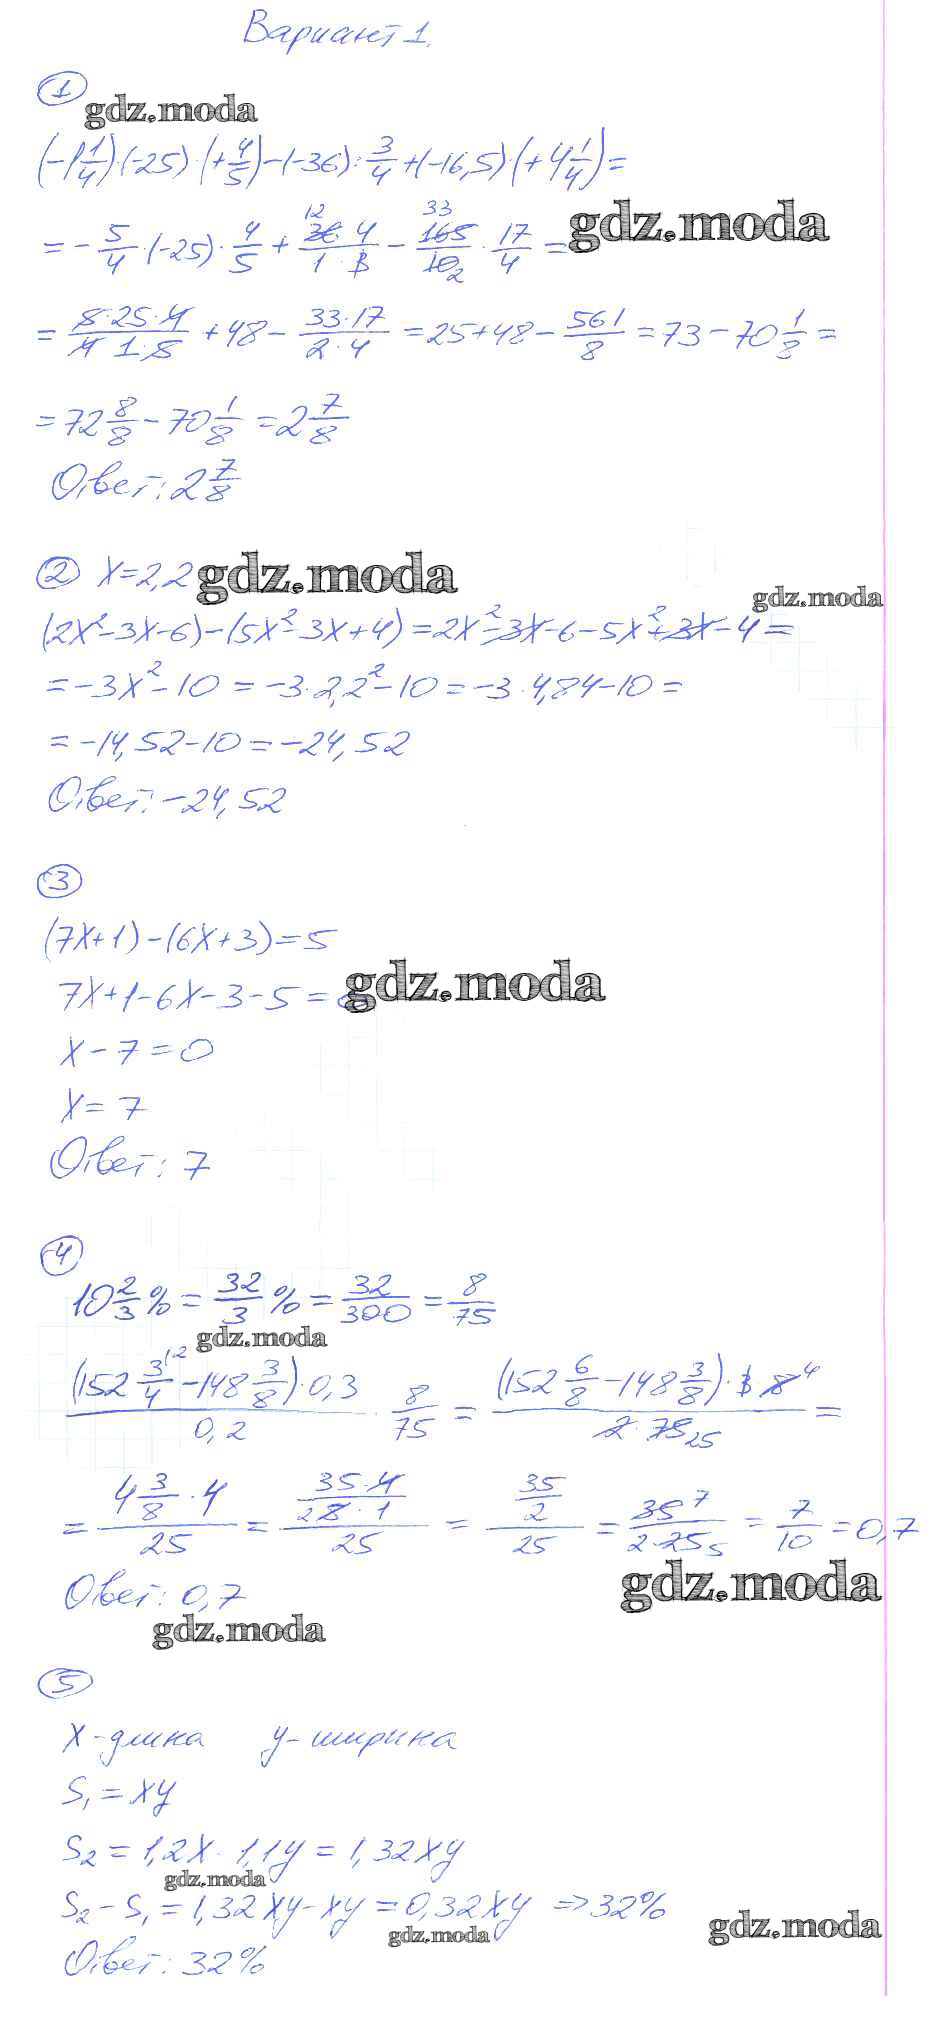 Вариант 1.
1
gdz.moda
(-1 1/4)·(-25)·(+4/5)-(-36):3/4+(-16,5)·(+4 1/4)=
=-5/4·(-25)·4/5+(36·4)/(1·3) 12-165/10 33 2·17/4=
gdz.moda
=(5·25·4)/(4·1·5)+48-(33·17)/(2·4)=25+48-561/8=73-70 1/8=
=72 8/8-70 1/8=2 7/8
Ответ: 2 7/8
2 X=2,2
gdz.moda
gdz.moda
(2X²-3X-6)-(5X²-3X+4)=2X²-3X-6-5X²+3X-4=
=-3X²-10=-3·2,2²-10=-3·4,84-10=
=-14,52-10=-24,52
Ответ: -24,52
3
(7X+1)-(6X+3)=5
gdz.moda
7X+1-6X-3-5=0
X-7=0
X=7
Ответ: 7
4
10 2/3%=32/3%=32/300=8/75
gdz.moda
((152 3/4 -148 3/8)·0,3)/0,2·8/75=((152 6/8-148 3/8)·3·8 4)/(2·75 25)=
=(4 3/8·4)/25=((35·4)/(2 8·1))/25=(35/2)/25=35 7/(2·25 5)=7/10=0,7
gdz.moda
Ответ: 0,7
gdz.moda
5
X-длина y-ширина
S₁=Xy
S₂=1,2X·1,1y=1,32Xy
gdz.moda
S₂-S₁=1,32Xy-Xy=0,32Xy =>32%
gdz.moda
gdz.moda
Ответ: 32%